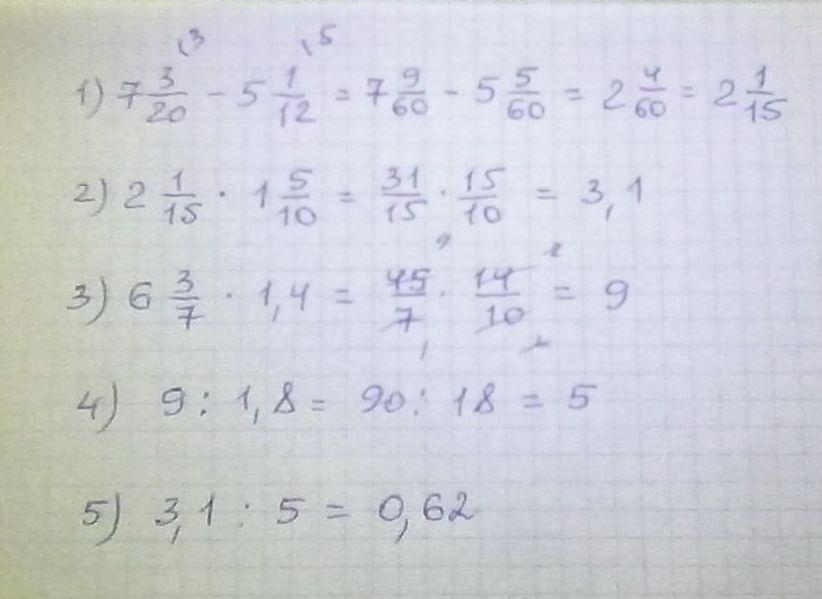 1) 7 3/20 \3 - 5 1/12 \5 = 7 9/60 - 5 5/60 = 2 4/60 = 2 1/15
2) 2 1/15 · 1 5/10 = 31/15 · 15/10 = 3,1
3) 6 3/7 · 1,4 = 45/7 · 14/10 = 9
4) 9 : 1,8 = 90 : 18 = 5
5) 3,1 : 5 = 0,62